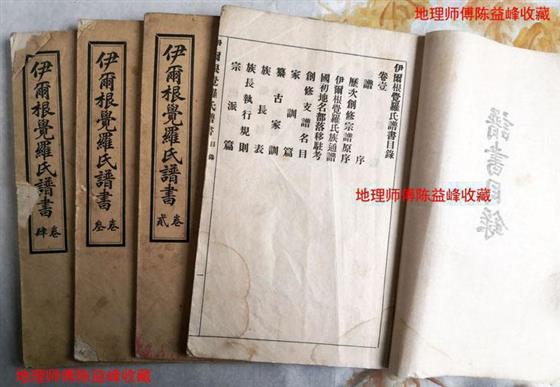 地理师傅陈益峰收藏
譜書目錄
伊爾根覺羅氏譜書目錄
卷壹
譜序
歷次創修宗譜原序
伊爾根覺羅氏族通譜
國初地名部落移駐考
創修支譜名目
家訓篇
纂古家訓
族長表
族長執行規則
宗派篇
伊爾根覺羅氏譜書 目錄 一
伊爾根覺羅氏譜書 卷貳
伊爾根覺羅氏譜書 卷叁
伊爾根覺羅氏譜書 卷肆
地理师傅陈益峰收藏
地理师傅陈益峰收藏